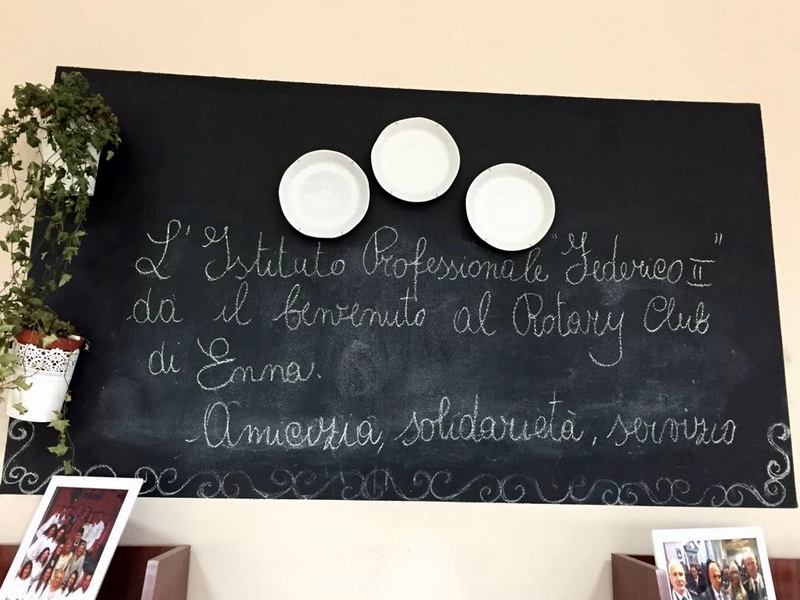 L'Istituto Professionale "Federico II"
dà il benvenuto al Rotary Club
di Enna.
Amicizia, solidarietà, servizio